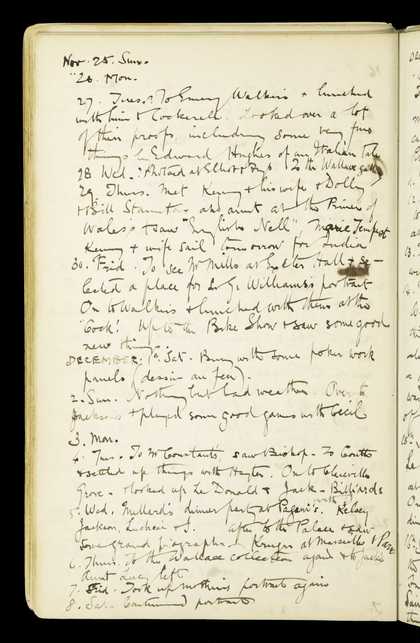 Nov. 25. Sun.
" 26. Mon.
27. Tues. To Emery Walkers & lunched
with him & Cockerell. Looked over a lot
of their proofs, including some very fine
things by Edward Hughes of an Italian tale
28 Wed. Photoed at Elliot & Frys To the Wallace
29 Thurs. Met Kenny & his wife & Dolly
& Bill and aunt at the Prince of
Wales & saw "English Nell" Marie Tempest
Kenny & wife sail tomorrow for India
30. Frid. To see Mr Mills at Exeter Hall & se-
lected a place for Sir G. Williams's portrait
On to Walkers & lunched with them at the
"Cock". Up to the Bike Show & saw some good
new things
DECEMBER. 1st. Sat. Busy with some poker work
panels (dessin au feu).
2. Sun. Nothing but bad weather. Over to
Jacksons & played some good games with Cecil
3. Mon.
4. Tues. To Mr Constants, saw Bishop. To Coutts
& settled up things with Hayter. On to Clareville
Grove - looked up Le Donald & Jack - Billiards
5. Wed. Millard's dinner party at Pagani's. with Kelsey
Jackson, & I. After to the Palace & saw
some grand biographs - Kruger at Marseilles & Paris
6. Thurs. To the Wallace collection again & to Jacks
Aunt away left
7. Frid. Took up mothers portrait again
8. Sat. Continued portrait